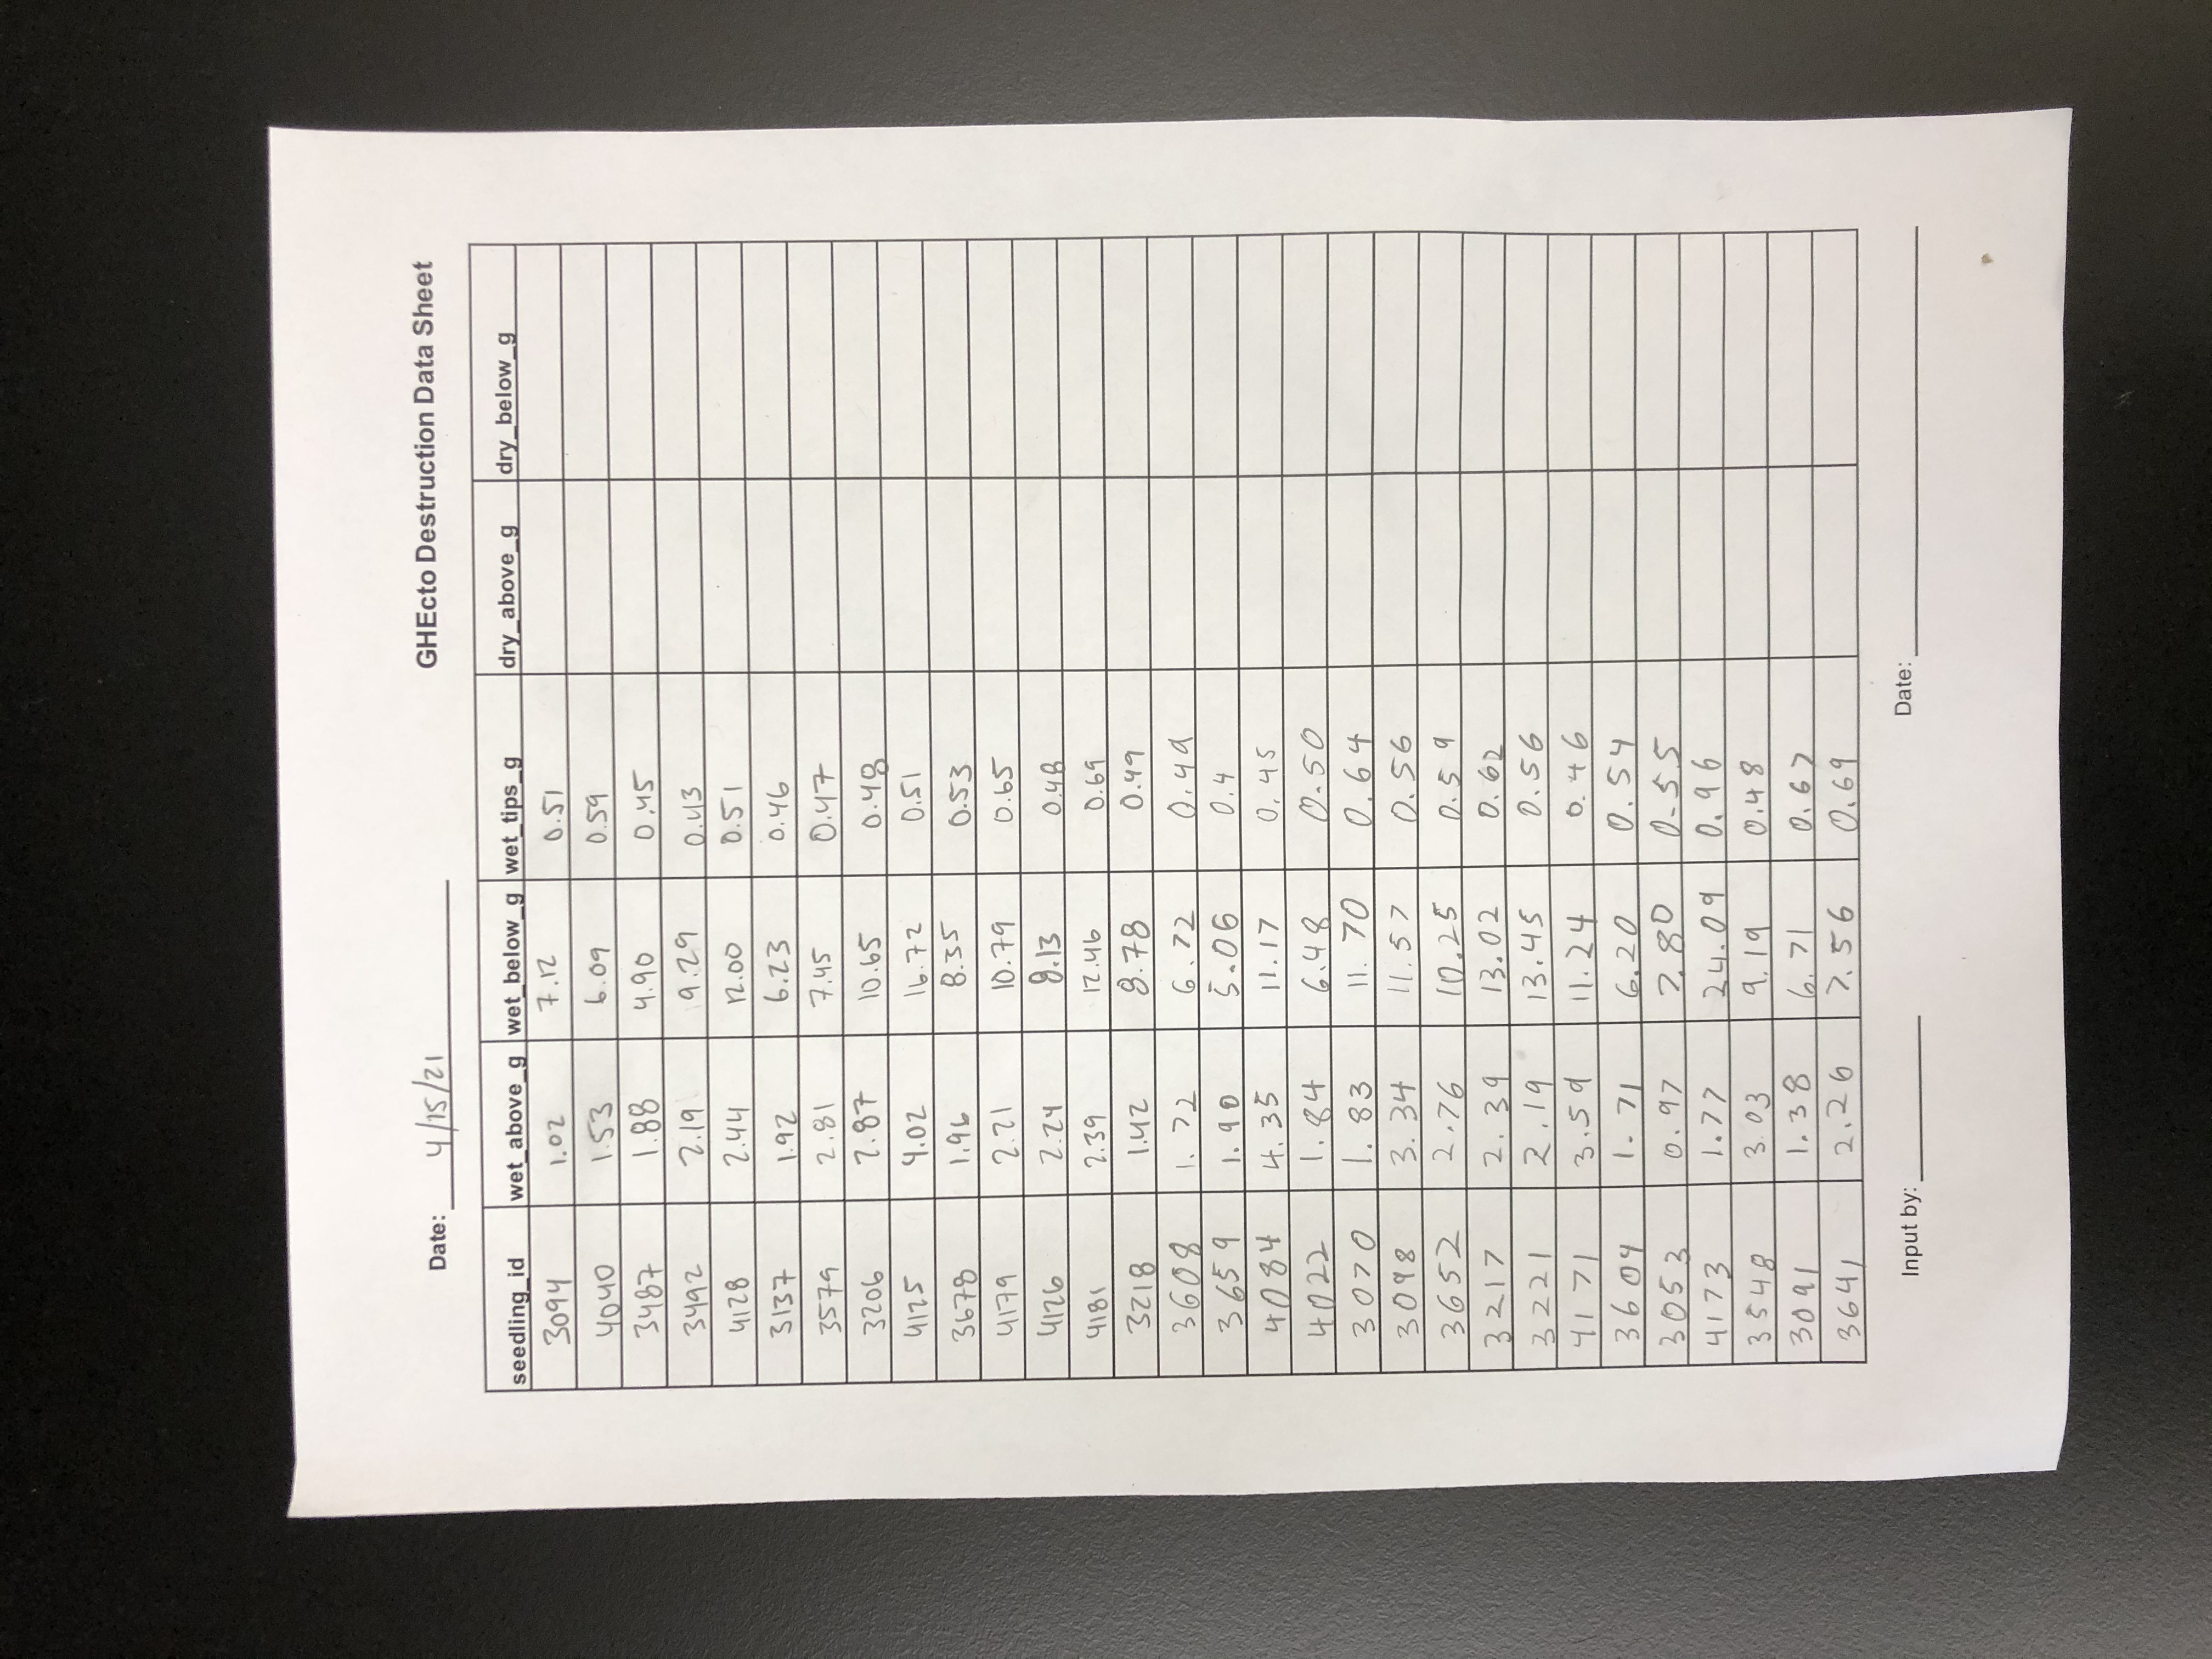 Date: 4/15/21 GHEcto Destruction Data Sheet
seedling_id wet_above_g wet_below_g wet_tips_g dry_above_g dry_below_g
3094 1.02 7.12 0.51
4040 1.53 6.09 0.59
3487 1.88 4.90 0.45
3492 2.19 9.29 0.43
4128 2.44 12.00 0.51
3137 1.92 6.23 0.46
3579 2.81 7.45 0.47
3206 2.87 10.65 0.48
4125 4.02 16.72 0.51
3678 1.96 8.35 0.53
4179 2.21 10.79 0.65
4126 2.24 8.13 0.48
4181 2.39 12.46 0.69
3218 1.42 8.78 0.49
3608 1.72 6.72 0.49
3659 1.90 5.06 0.4
4084 4.35 11.17 0.45
4022 1.84 6.48 0.50
3070 1.83 11.70 0.64
3098 3.34 11.57 0.56
3652 2.76 10.25 0.59
3217 2.39 13.02 0.62
3221 2.19 13.45 0.56
4171 3.59 11.24 0.46
3604 1.71 6.20 0.54
3053 0.97 7.80 0.55
4173 1.77 24.09 0.96
3548 3.03 9.19 0.48
3091 1.38 6.71 0.67
3641 2.26 7.56 0.69
Input by: Date: